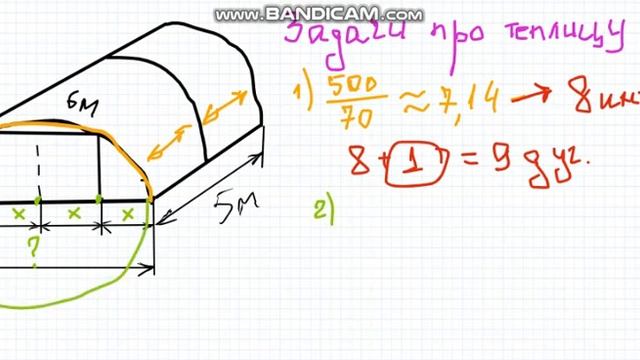 www.BANDICAM.com
Задачи про теплицу
1) 500/70 ≈ 7,14 → 8 инт
6м
8 + 1 = 9 дуг.
x x x
5м
2)
?